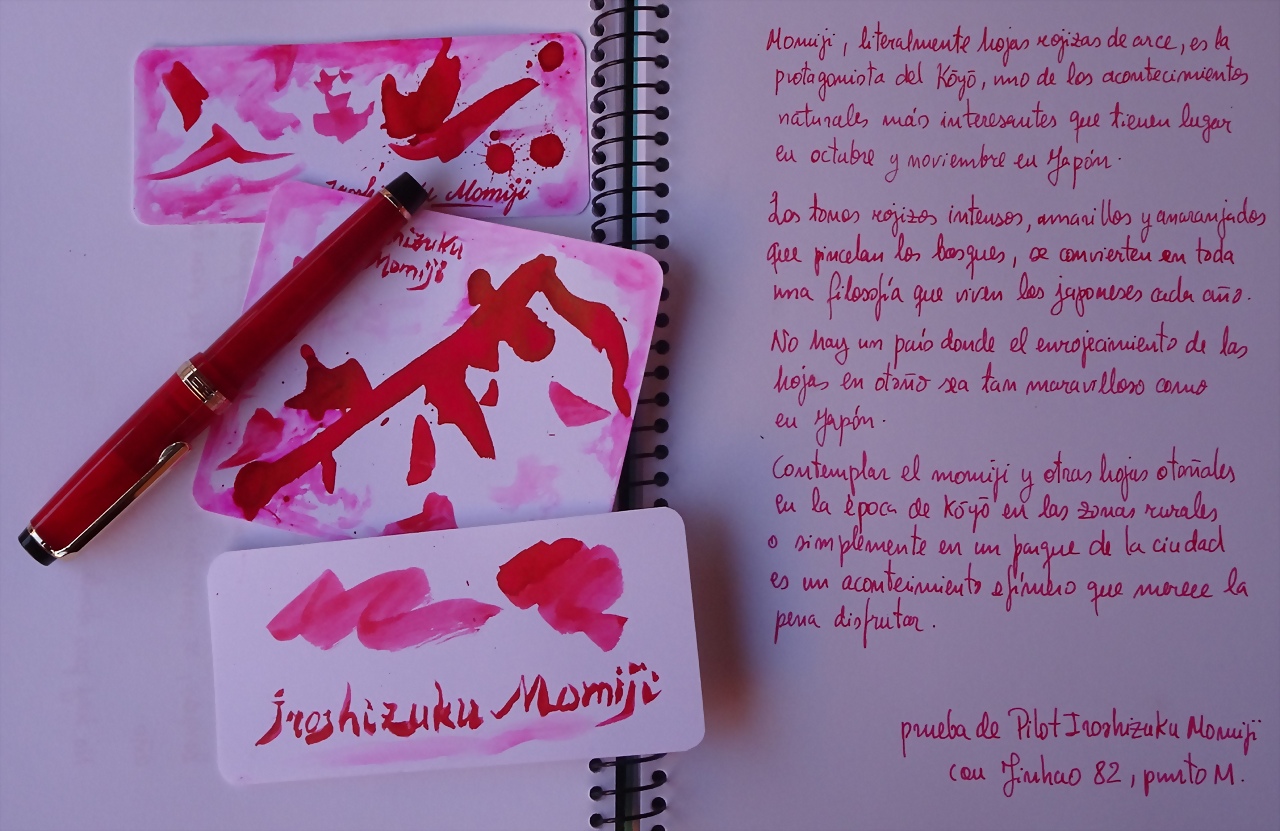 Iroshizuku Momiji
shizuku
Momiji
Iroshizuku Momiji
Momiji, literalmente hojas rojizas de arce, es la
protagonista del Kōyō, uno de los acontecimientos
naturales más interesantes que tienen lugar
en octubre y noviembre en Japón.
Los tonos rojizos intensos, amarillos y anaranjados
que pincelan los bosques, se convierten en toda
una filosofía que viven los japoneses cada año.
No hay un país donde el enrojecimiento de las
hojas en otoño sea tan maravilloso como
en Japón.
Contemplar el momiji y otras hojas otoñales
en la época de Kōyō en las zonas rurales
o simplemente en un parque de la ciudad
es un acontecimiento efímero que merece la
pena disfrutar.
prueba de Pilot Iroshizuku Momiji
con Jinhao 82, punto M.